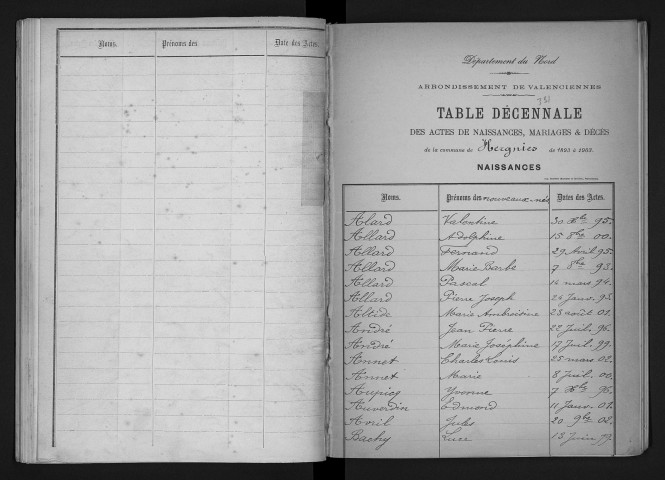 Noms. Prénoms des Date des Actes.
Département du Nord
ARRONDISSEMENT DE VALENCIENNES
TABLE DÉCENNALE
DES ACTES DE NAISSANCES, MARIAGES & DÉCÈS
de la commune de Hergnies de 1893 à 1902.
NAISSANCES
Noms. Prénoms des nouveaux-nés Dates des Actes.
Alard Valentine 30 Xbre 95.
Allard Adolphine 15 8bre 00.
Allard Fernand 29 Avril 95.
Allard Marie Barbe 7 8bre 93.
Allard Pascal 14 mars 94.
Allard Pierre Joseph 24 Janv. 93.
Altide Marie Ambroisine 23 août 01.
André Jean Pierre 22 Juil. 96.
André Marie Joséphine 17 Juil. 99.
Annet Charles Louis 25 mars 02.
Annet Marie 8 Juil. 00.
Aupicq Yvonne 7 Xbre 96.
Auverdin Edmond 11 Janv. 01.
Avril Jules 20 9bre 02.
Bachy Luce 13 Juin 97.